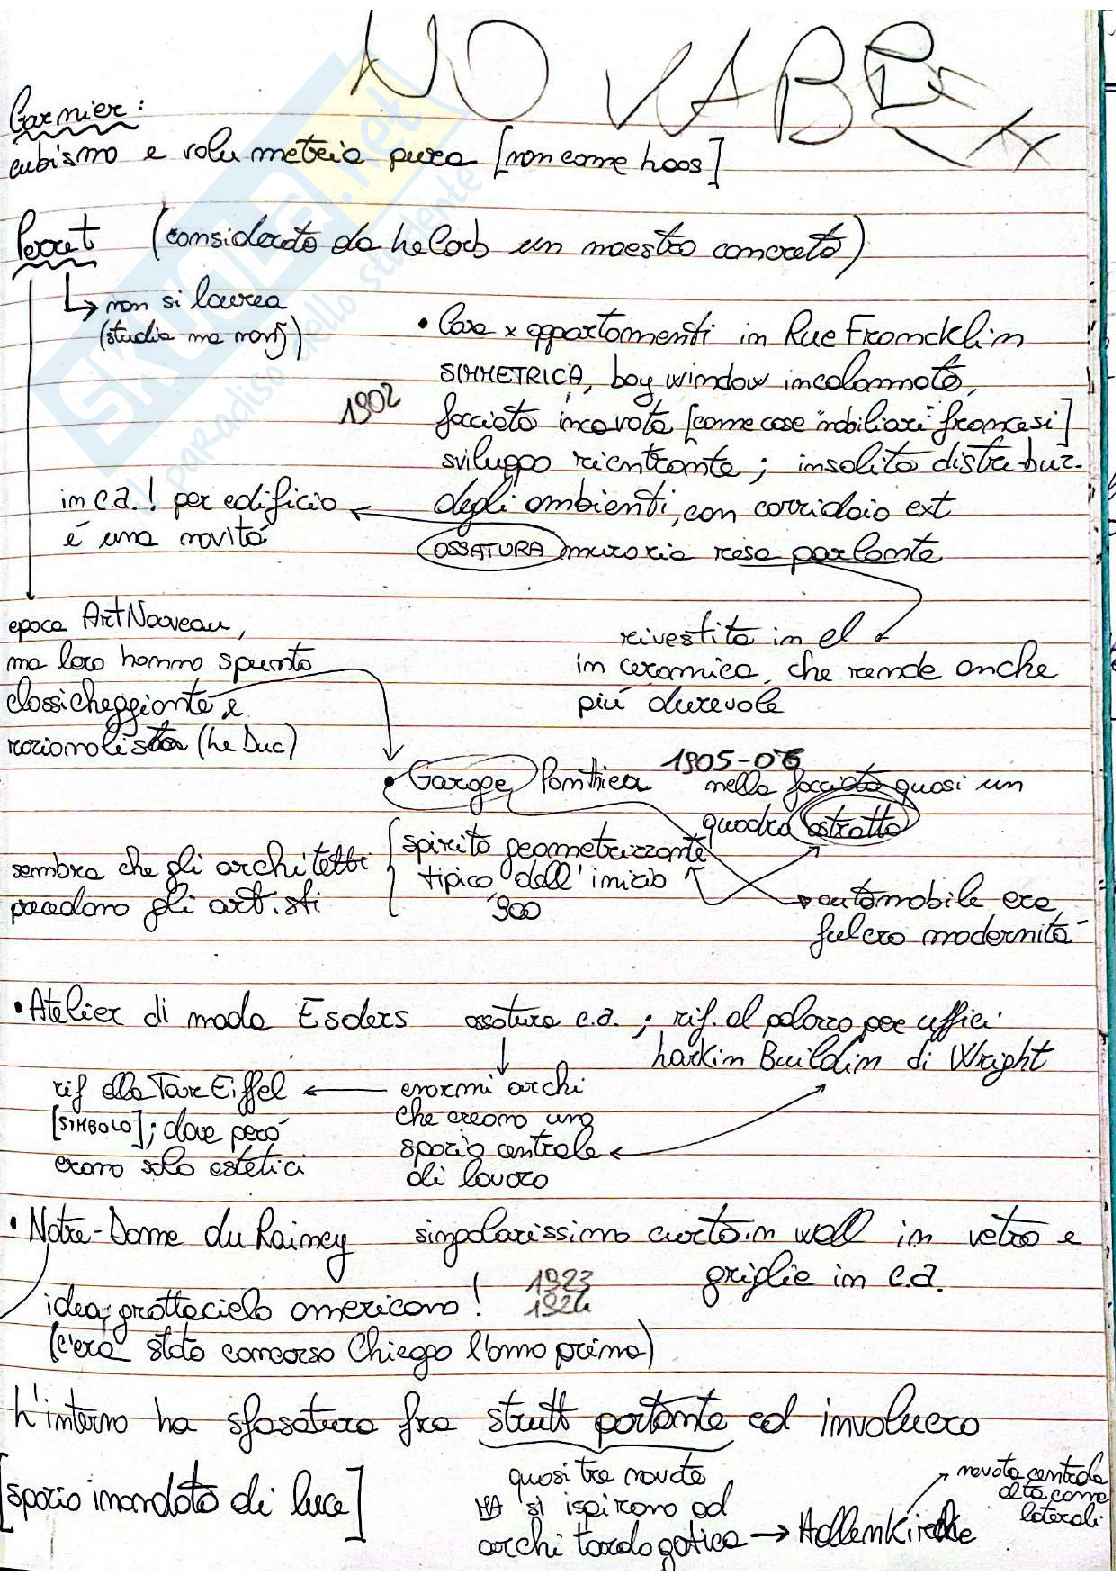 NO VABBE
Garnier:
cubismo e volumetria pura [non come Loos]
Perret (considerato da Le Corb un maestro concreto)
non si laurea
(studia ma non)
• Casa x appartamenti in Rue Francklin
SIMMETRICA, bay window incolonnato,
1902
facciata incavata [come case nobiliari francesi]
sviluppo rientrante; insolita distribuz.
in c.a.! per edificio
degli ambienti, con corridoio ext
é una novitá
OSSATURA muraria resa parlante
epoca Art Nouveau,
rivestita in el
ma loro hanno spunto
in ceramica, che rende anche
classicheggiante e
piú durevole
razionalista (Le Duc)
• Garage Ponthieu 1905-06 nella facciata quasi un
quadro astratto
sembra che gli architetti
spirito geometrizzante
precedono gli artisti
tipico dell'inizio
900
automobile era
fulcro modernitá
• Atelier di moda Esders ossatura c.a.; rif. al palazzo per uffici
Larkin Buildin di Wright
rif alla Tour Eiffel
enormi archi
[SIMBOLO]; dove peró
che creano uno
spazio centrale
erano solo estetici
di lavoro
• Notre-Dame du Raincy singolarissimo curtain wall in vetro e
griglie in c.a.
1923
1924
idea; grattacielo americano!
(c'era stato concorso Chicago l'anno prima)
L'interno ha sfasatura fra strutt portante ed involucro
[spazio inondato di luce]
quasi tre navate
MA si ispirano ad
archi tardo gotica → Hallenkirche
navata centrale
alta come
laterali
SKUOLA.net
il paradiso dello studente